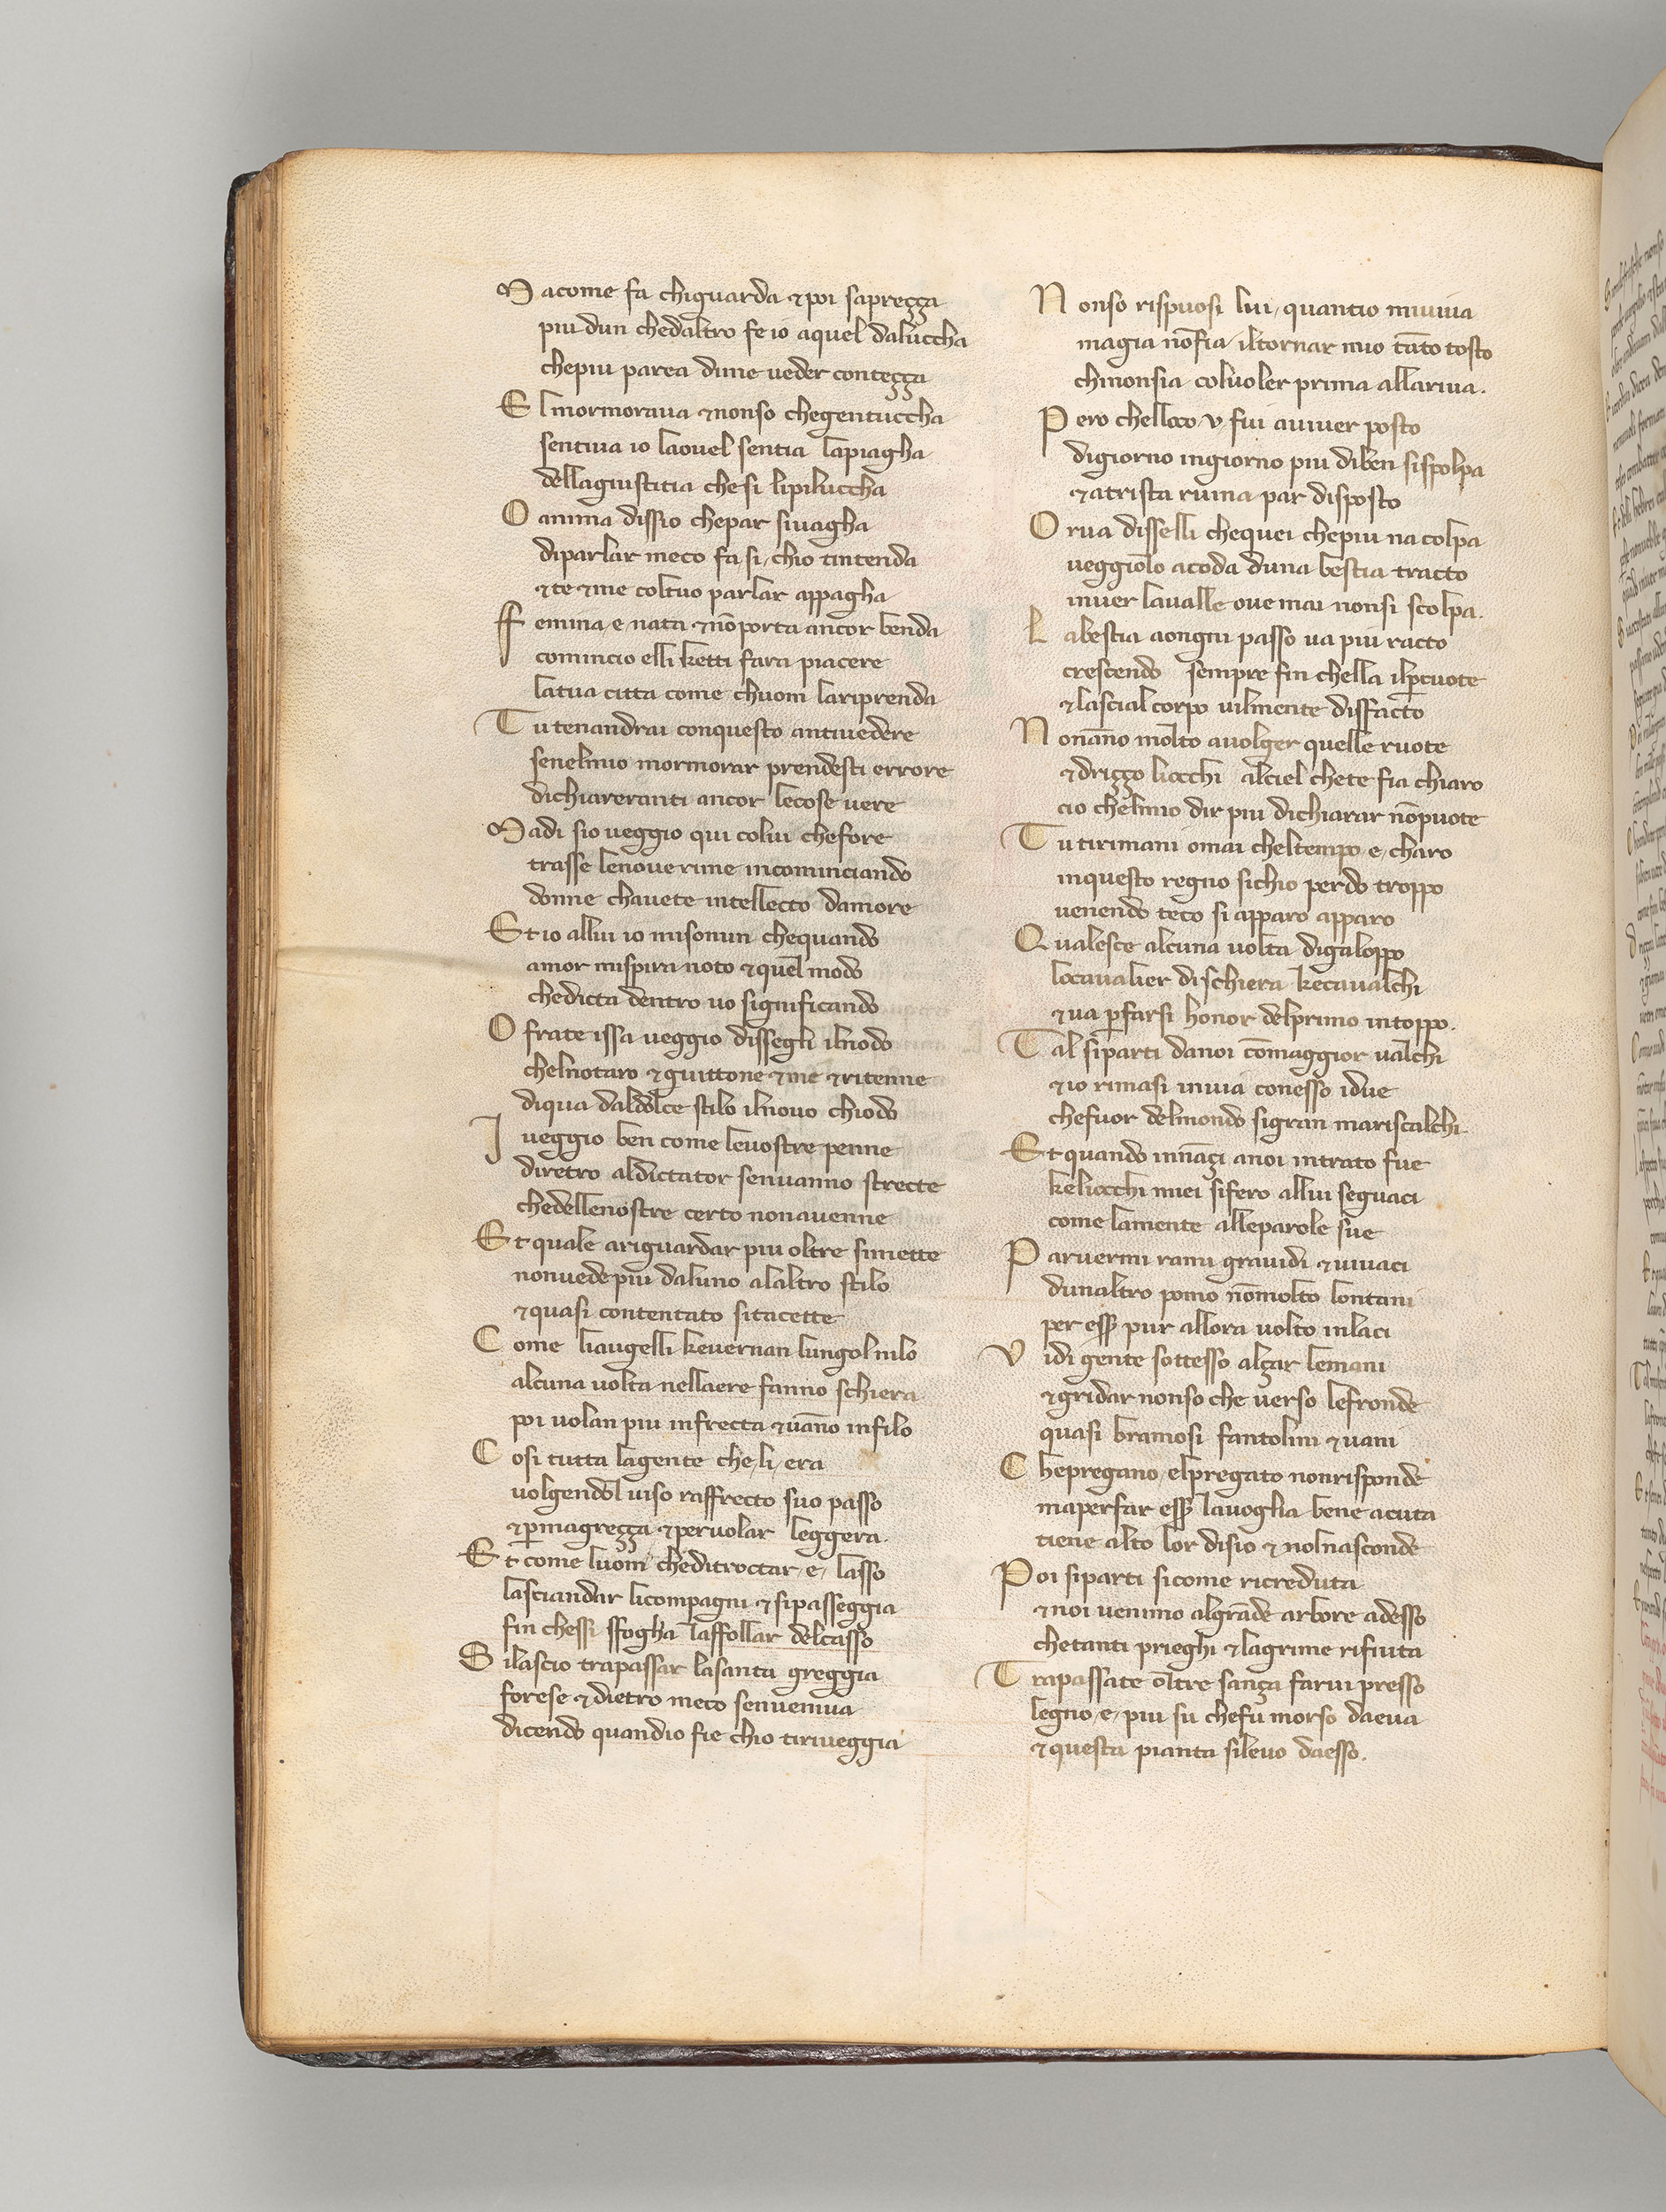 M acome fa chiguarda ⁊ poi sapreçça
piu dun chedaltro fe io aquel daluccha
chepiu parea dime ueder conteçça
E l mormoraua ⁊ nonso chegentuccha
sentiua io laouel sentia lapiagha
dellagiustitia chesi lipiluccha
O anima dissio chepar siuagha
diparlar meco fa si chio tintenda
⁊ te ⁊ me coltuo parlar appagha
F emina e nata ⁊ nō porta ancor benda
comincio elli ketti fara piacere
latua citta come chuom lariprenda
T utenandrai conquesto antiuedere
senelmio mormorar prendesti errore
dichiareranti ancor lecose uere
M adi sio ueggio qui colui chefore
trasse lenoue rime incominciando
donne chauete intellecto damore
E t io allui io misonun chequando
amor mispira noto ⁊ quel modo
chedicta dentro uo significando
O frate issa ueggio dissegli ilnodo
chelnotaro ⁊ guittone ⁊ me ⁊ ritenne
diqua daldolce stilo ilnouo chiodo
I ueggio ben come leuostre penne
diretro aldictator senuanno strecte
chedellenostre certo nonauenne
E t quale ariguardar piu oltre simette
nonuede piu daluno alaltro stilo
⁊ quasi contentato sitacette
C ome liaugelli keuernan lungol nilo
alcuna uolta nellaere fanno schiera
poi uolan piu infrecta ⁊ uāno infilo
C osi tutta lagente che li era
uolgendol uiso raffrecto suo passo
⁊ ꝑmagreçça ⁊ peruolar leggera.
E t come luom cheditroctar e lasso
lasciandar licompagni ⁊ sipasseggia
fin chessi sfogha laffollar delcasso
S ilascio trapassar lasanta greggia
forese ⁊ dietro meco senueniua
dicendo quandio fie chio tiriueggia
N onso rispuosi lui quantio miuiua
magia nōfia iltornar mio tāto tosto
chinonsia coluoler prima allariua.
P ero chelloco u fui auiuer posto
digiorno ingiorno piu diben sispolpa
⁊ atrista ruina par disposto
O rua disselli chequei chepiu na colpa
ueggiolo acoda duna bestia tracto
inuer laualle oue mai nonsi scolpa.
L abestia aongni passo ua piu racto
crescendo sempre fin chella ilꝑcuote
⁊ lascial corpo uilmente disfacto
N onāno molto auolger quelle ruote
⁊ driçço liocchi alciel chete fia chiaro
cio chelmio dir piu dichiarar nōpuote
T utirimani omai cheltempo e charo
inquesto regno sichio perdo troppo
uenendo teco si apparo apparo
Q ualesce alcuna uolta digaloppo
locaualier dischiera kecaualchi
⁊ ua ꝑfarsi honor delprimo intoppo.
T al siparti danoi cōmaggior ualchi
⁊ io rimasi inuia conesso idue
chefuor delmondo sigran mariscalchi.
E t quando innāçi anoi intrato fue
keliocchi miei sifero allui seguaci
come lamente alleparole sue
P aruermi rami grauidi ⁊ uiuaci
dunaltro pomo nōmolto lontani
per ess̄ pur allora uolto inlaci
V idi gente sottesso alçar lemani
⁊ gridar nonso che uerso lefronde
quasi bramosi fantolini ⁊ uani
C hepregano elpregato nonrisponde
maperfar ess̄ lauoglia bene acuta
tiene alto lor disio ⁊ nolnasconde
P oi siparti sicome ricreduta
⁊ noi uenimo algrāde arbore adesso
chetanti prieghi ⁊ lagrime rifiuta
T rapassate oltre sança farui presso
legno e piu su chefu morso daeua
⁊ questa pianta sileuo daesso.